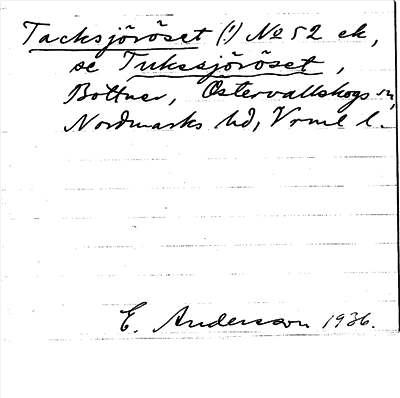 Tacksjöröset (!) No 52 ek,
se Tukssjöröset,
Bottner, Östervallskogs sn,
Nordmarks hd, Vrml l.
E. Andersson 1936.